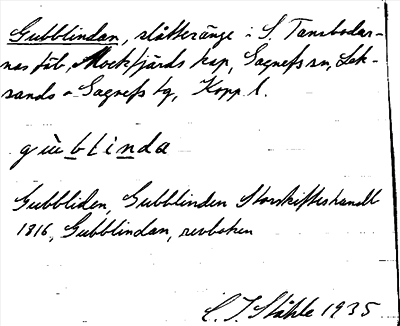 Gubblindan, slåtteränge i S. Tansbodar-
nas fäb, Mockfjärds kap, Gagnefs sn, Lek-
sands o Gagnefs tg, Kopp. l.
gùblinda
Gubbliden, Gubblinden Storskifteshandl
1816, Gubblindan, revboken
C. I. Ståhle 1935